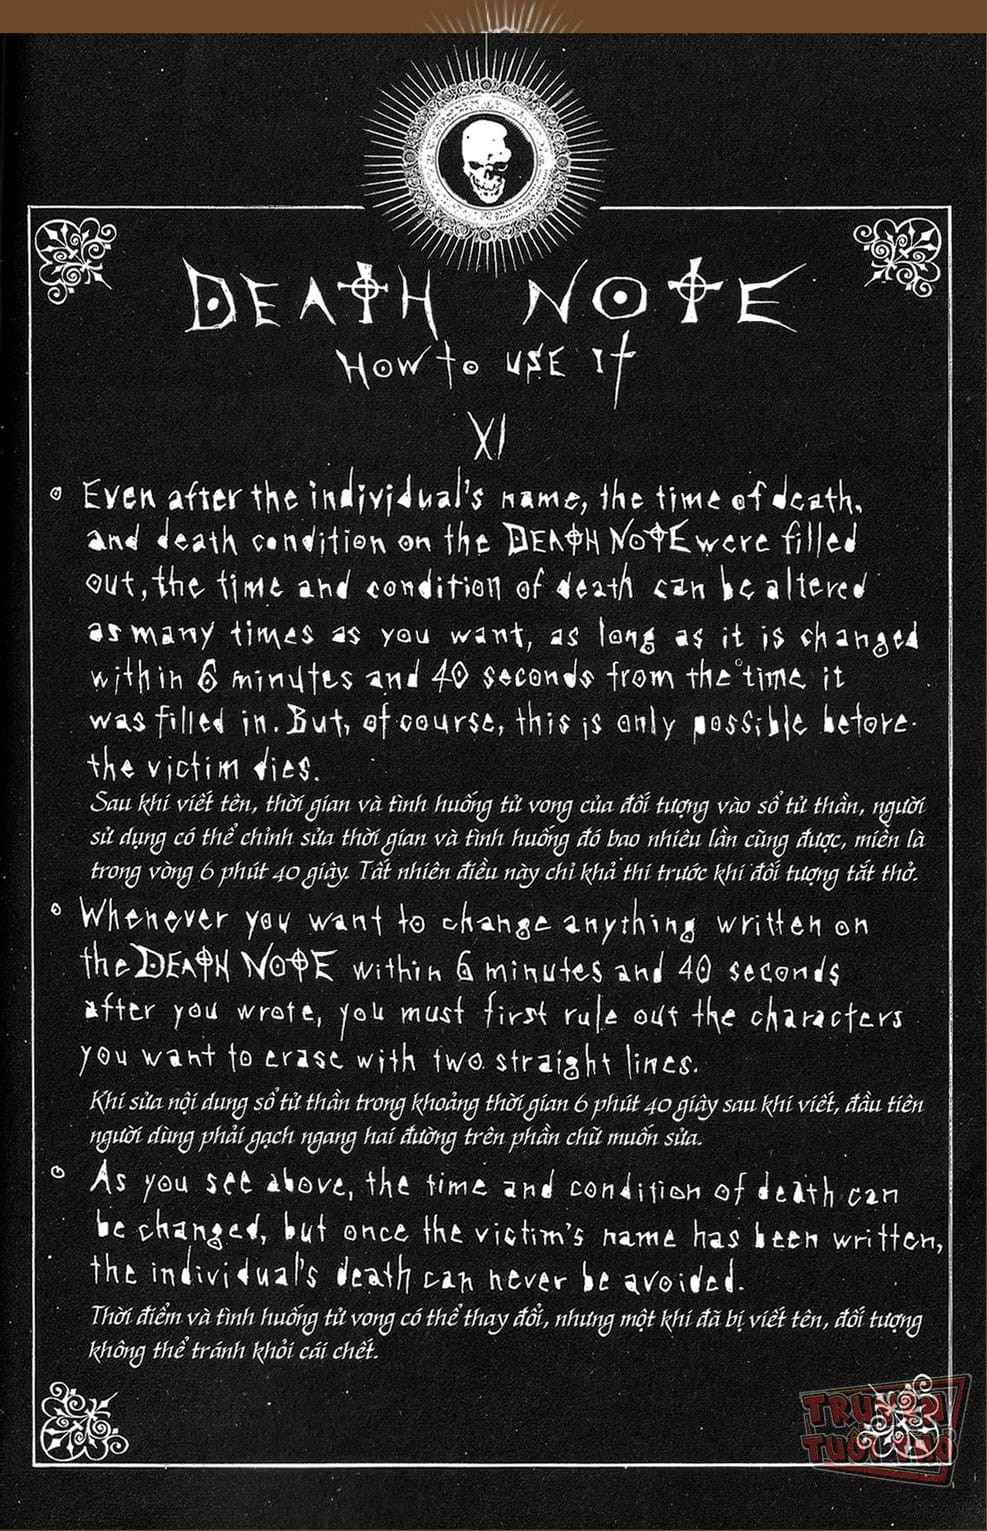 DEATH NOTE
How to use it
XI
Even after the individual's name, the time of death,
and death condition on the DEATH NOTE were filled
out, the time and condition of death can be altered
as many times as you want, as long as it is changed
within 6 minutes and 40 seconds from the time it
was filled in. But, of course, this is only possible before
the victim dies.
Sau khi viết tên, thời gian và tình huống tử vong của đối tượng vào sổ tử thần, người
sử dụng có thể chỉnh sửa thời gian và tình huống đó bao nhiêu lần cũng được, miễn là
trong vòng 6 phút 40 giây. Tất nhiên điều này chỉ khả thi trước khi đối tượng tắt thở.
Whenever you want to change anything written on
the DEATH NOTE within 6 minutes and 40 seconds
after you wrote, you must first rule out the characters
you want to erase with two straight lines.
Khi sửa nội dung sổ tử thần trong khoảng thời gian 6 phút 40 giây sau khi viết, đầu tiên
người dùng phải gạch ngang hai đường trên phần chữ muốn sửa.
As you see above, the time and condition of death can
be changed, but once the victim's name has been written,
the individual's death can never be avoided.
Thời điểm và tình huống tử vong có thể thay đổi, nhưng một khi đã bị viết tên, đối tượng
không thể tránh khỏi cái chết.
TRUYỆN
TUỔI THƠ